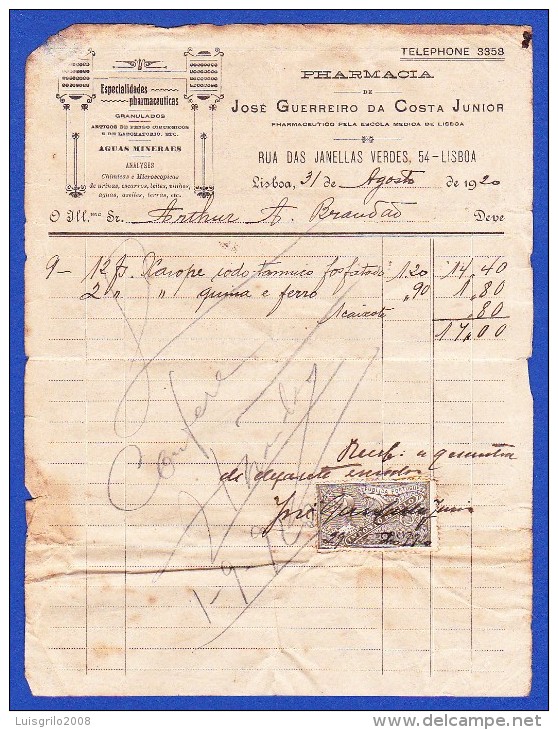 TELEPHONE 3358
Especialidades
pharmaceuticas
GRANULADOS
ARTIGOS DE PENSO CIRURGICOS
E DE LABORATORIO, ETC.
AGUAS MINERAES
ANALYSES
Chimicas e Microscopicas
de urinas, escarros, leites, vinhos,
aguas, azeites, terras, etc.
PHARMACIA
DE
JOSÉ GUERREIRO DA COSTA JUNIOR
PHARMACEUTICO PELA ESCOLA MEDICA DE LISBOA
RUA DAS JANELLAS VERDES, 54-LISBOA
Lisboa, 31 de Agosto de 1920
O Ill.mo Sr. Arthur A. Brandão Deve
9 - 12 Xarope iodo tannico fosfatado 1.20 14,40
2 " " guma e ferro ,90 1,80
1 caixote ,80
17,00
Confere
1-9-920
Recebi a quantia
de dezasete escudos
José Junior
Luisgrilo2008
www.delcampe.net